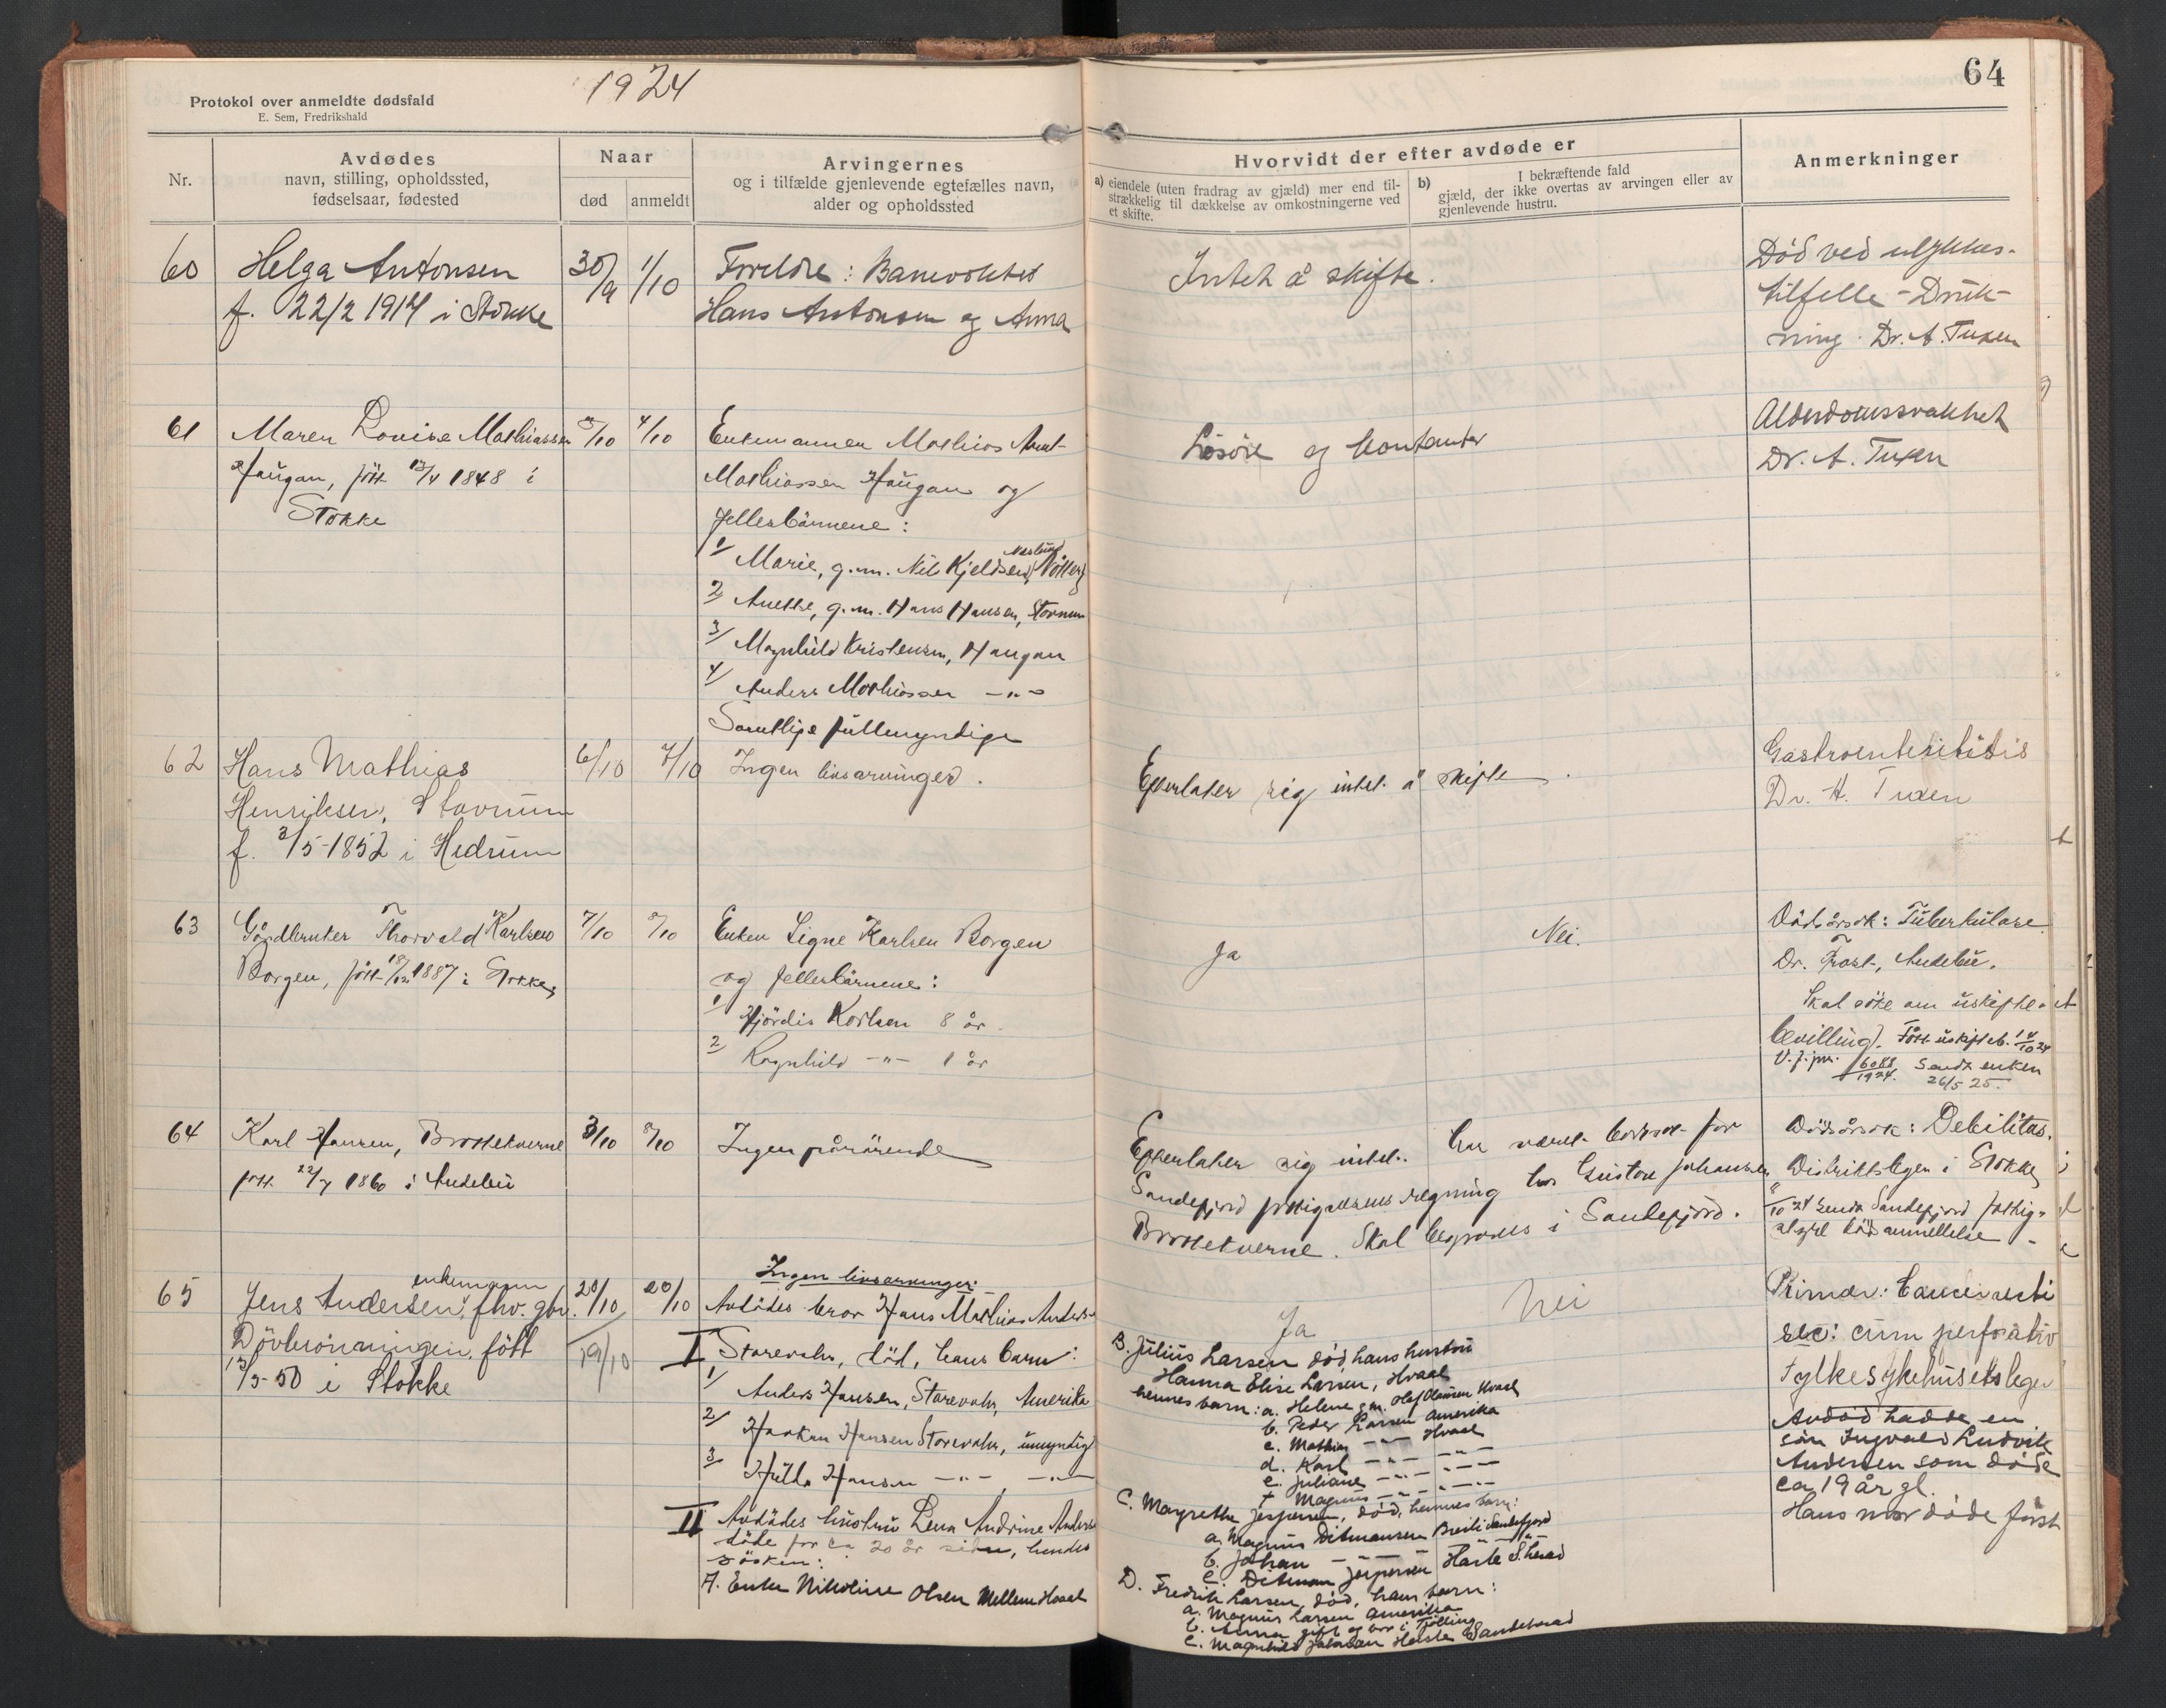 1924
64
Protokol over anmeldte dødsfald
E. Sem, Fredrikshald
Nr.
Avdødes
navn, stilling, opholdssted,
fødselsaar, fødested
Naar
død
anmeldt
Arvingernes
og i tilfælde gjenlevende egtefælles navn,
alder og opholdssted
Hvorvidt der efter avdøde er
a) eiendele (uten fradrag av gjæld) mer end til-
strækkelig til dækkelse av omkostningerne ved
et skifte.
b) I bekræftende fald
gjæld, der ikke overtas av arvingen eller av
gjenlevende hustru.
Anmerkninger
60
Helga Antonsen
f. 22/2 1914 i Stokke
30/9
1/10
Foreldre: Banevokter
Hans Antonsen og Anna
Intet å skifte.
Död ved ulykkes-
tilfelle - Druk-
ning. Dr. A. Tuxen
61
Maren Lovise Mathiassen
Haugan, født 1848 i
Stokke
/10
4/10
Enkemannen Mathias
Mathiassen Haugan og
fellesbarnene:
1/ Marie, g.m. Nils Kjeldsen,
2/ Anette, g.m. Hans Hansen, Stavnum
3/ Magnhild Kristensen, Haugan
4/ Anders Mathiassen -"-
Samtlige fullmyndige
Løsøre og kontanter
Alderdomssvakhet
Dr. A. Tuxen
62
Hans Mathias
Henriksen, Stavnum
f. 3/5-1852 i Hedrum
6/10
7/10
Ingen livsarvinger.
Efterlater sig intet å skifte.
Dr. A. Tuxen
63
Gårdbruker Thorvald Karlsen
Borgen, født 1887 i Stokke
7/10
8/10
Enken Signe Karlsen Borgen
og fellesbarnene:
1/ Hjördis Karlsen 8 år.
2/ Ragnhild -"- 1 år
Ja
Nei.
Dödsårsak: Tuberkulose.
Dr. Frost, Andebu.
Skal söke om uskifte-
bevilling. Fått uskifteb. 14/10 24
1924. Sendt enken
26/5 25.
64
Karl Hansen, Brottekverne
født 22/7 1860 i Andebu
3/10
8/10
Ingen pårörende
Efterlater sig intet. Har været bortsat for
Sandefjord fattigvæsens regning hos Gustav Johansen
Brottekverne. Skal begraves i Sandefjord.
Dödsårsak: Debilitas.
Distriktslegen i Stokke
/10 24 sendt Sandefjord fattig-
dödsanmeldelse
65
enkemann
Jens Andersen, fhv. gbr.
född
13/5-50 i Stokke
20/10
19/10
20/10
Ingen livsarvinger:
Avdödes bror Hans Mathias Anders-
I Storevahr, död, hans barn:
1/ Anders Hansen, Storevahr, Amerika
2/ Haakon Hansen Storevahr, umyndig
3/ Hansen -"- -"-
II Avdödes hustru Lena Andrine Anders
döde for ca 20 år siden, hendes
sösken:
A. Enke Nikoline Olsen Mellem Hvaal
Ja
Nei
B. Julius Larsen död hans hustru
Hanna Elise Larsen, Hvaal
hennes barn: a. Helene g.m. Olaf Hansen Hvaal
b. Peder Larsen Amerika
c. Mathias -"- Hvaal
d. Karl -"- -"-
e. Juliane -"- -"-
f. Magnus -"- -"-
C. Margrethe Jespersen, död, hennes barn:
a. Magnus Ditmansen Sandefjord
b. Johan -"- -"-
c. Ditman Jespersen Hasle S.herad
D. Fredrik Larsen, död, hans barn:
a. Magnus Larsen Amerika
b. Anna gift og bor i Tjölling
c. Magnhild Johansen Hasle Sandeherad
Primær: Cancer
sec: cum
Fylkesykehusets lege
Avdöd hadde en
sön Ingvald Ludvik
Andersen som döde
ca 19 år gl.
Hans mor döde först